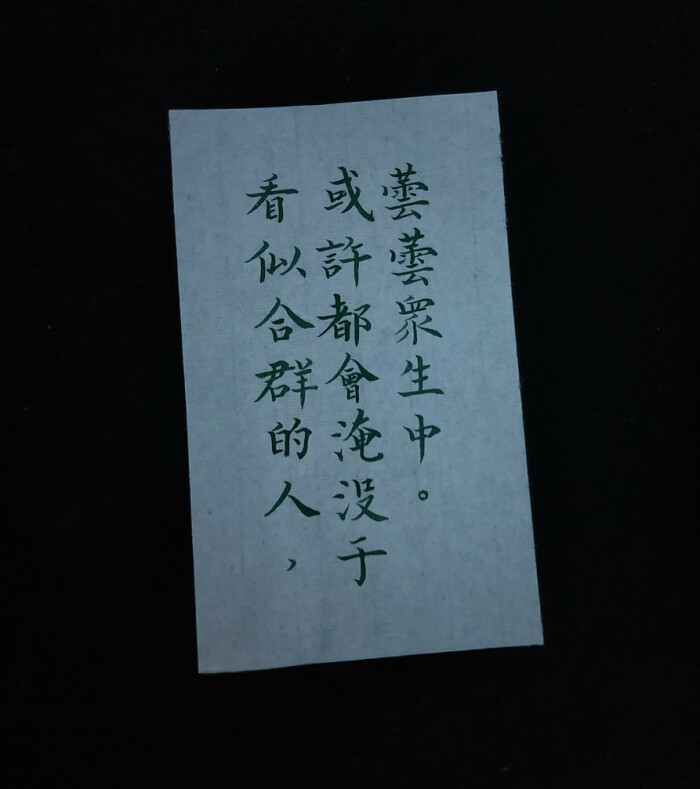 看似合群的人，
或許都會淹没于
蕓蕓眾生中。